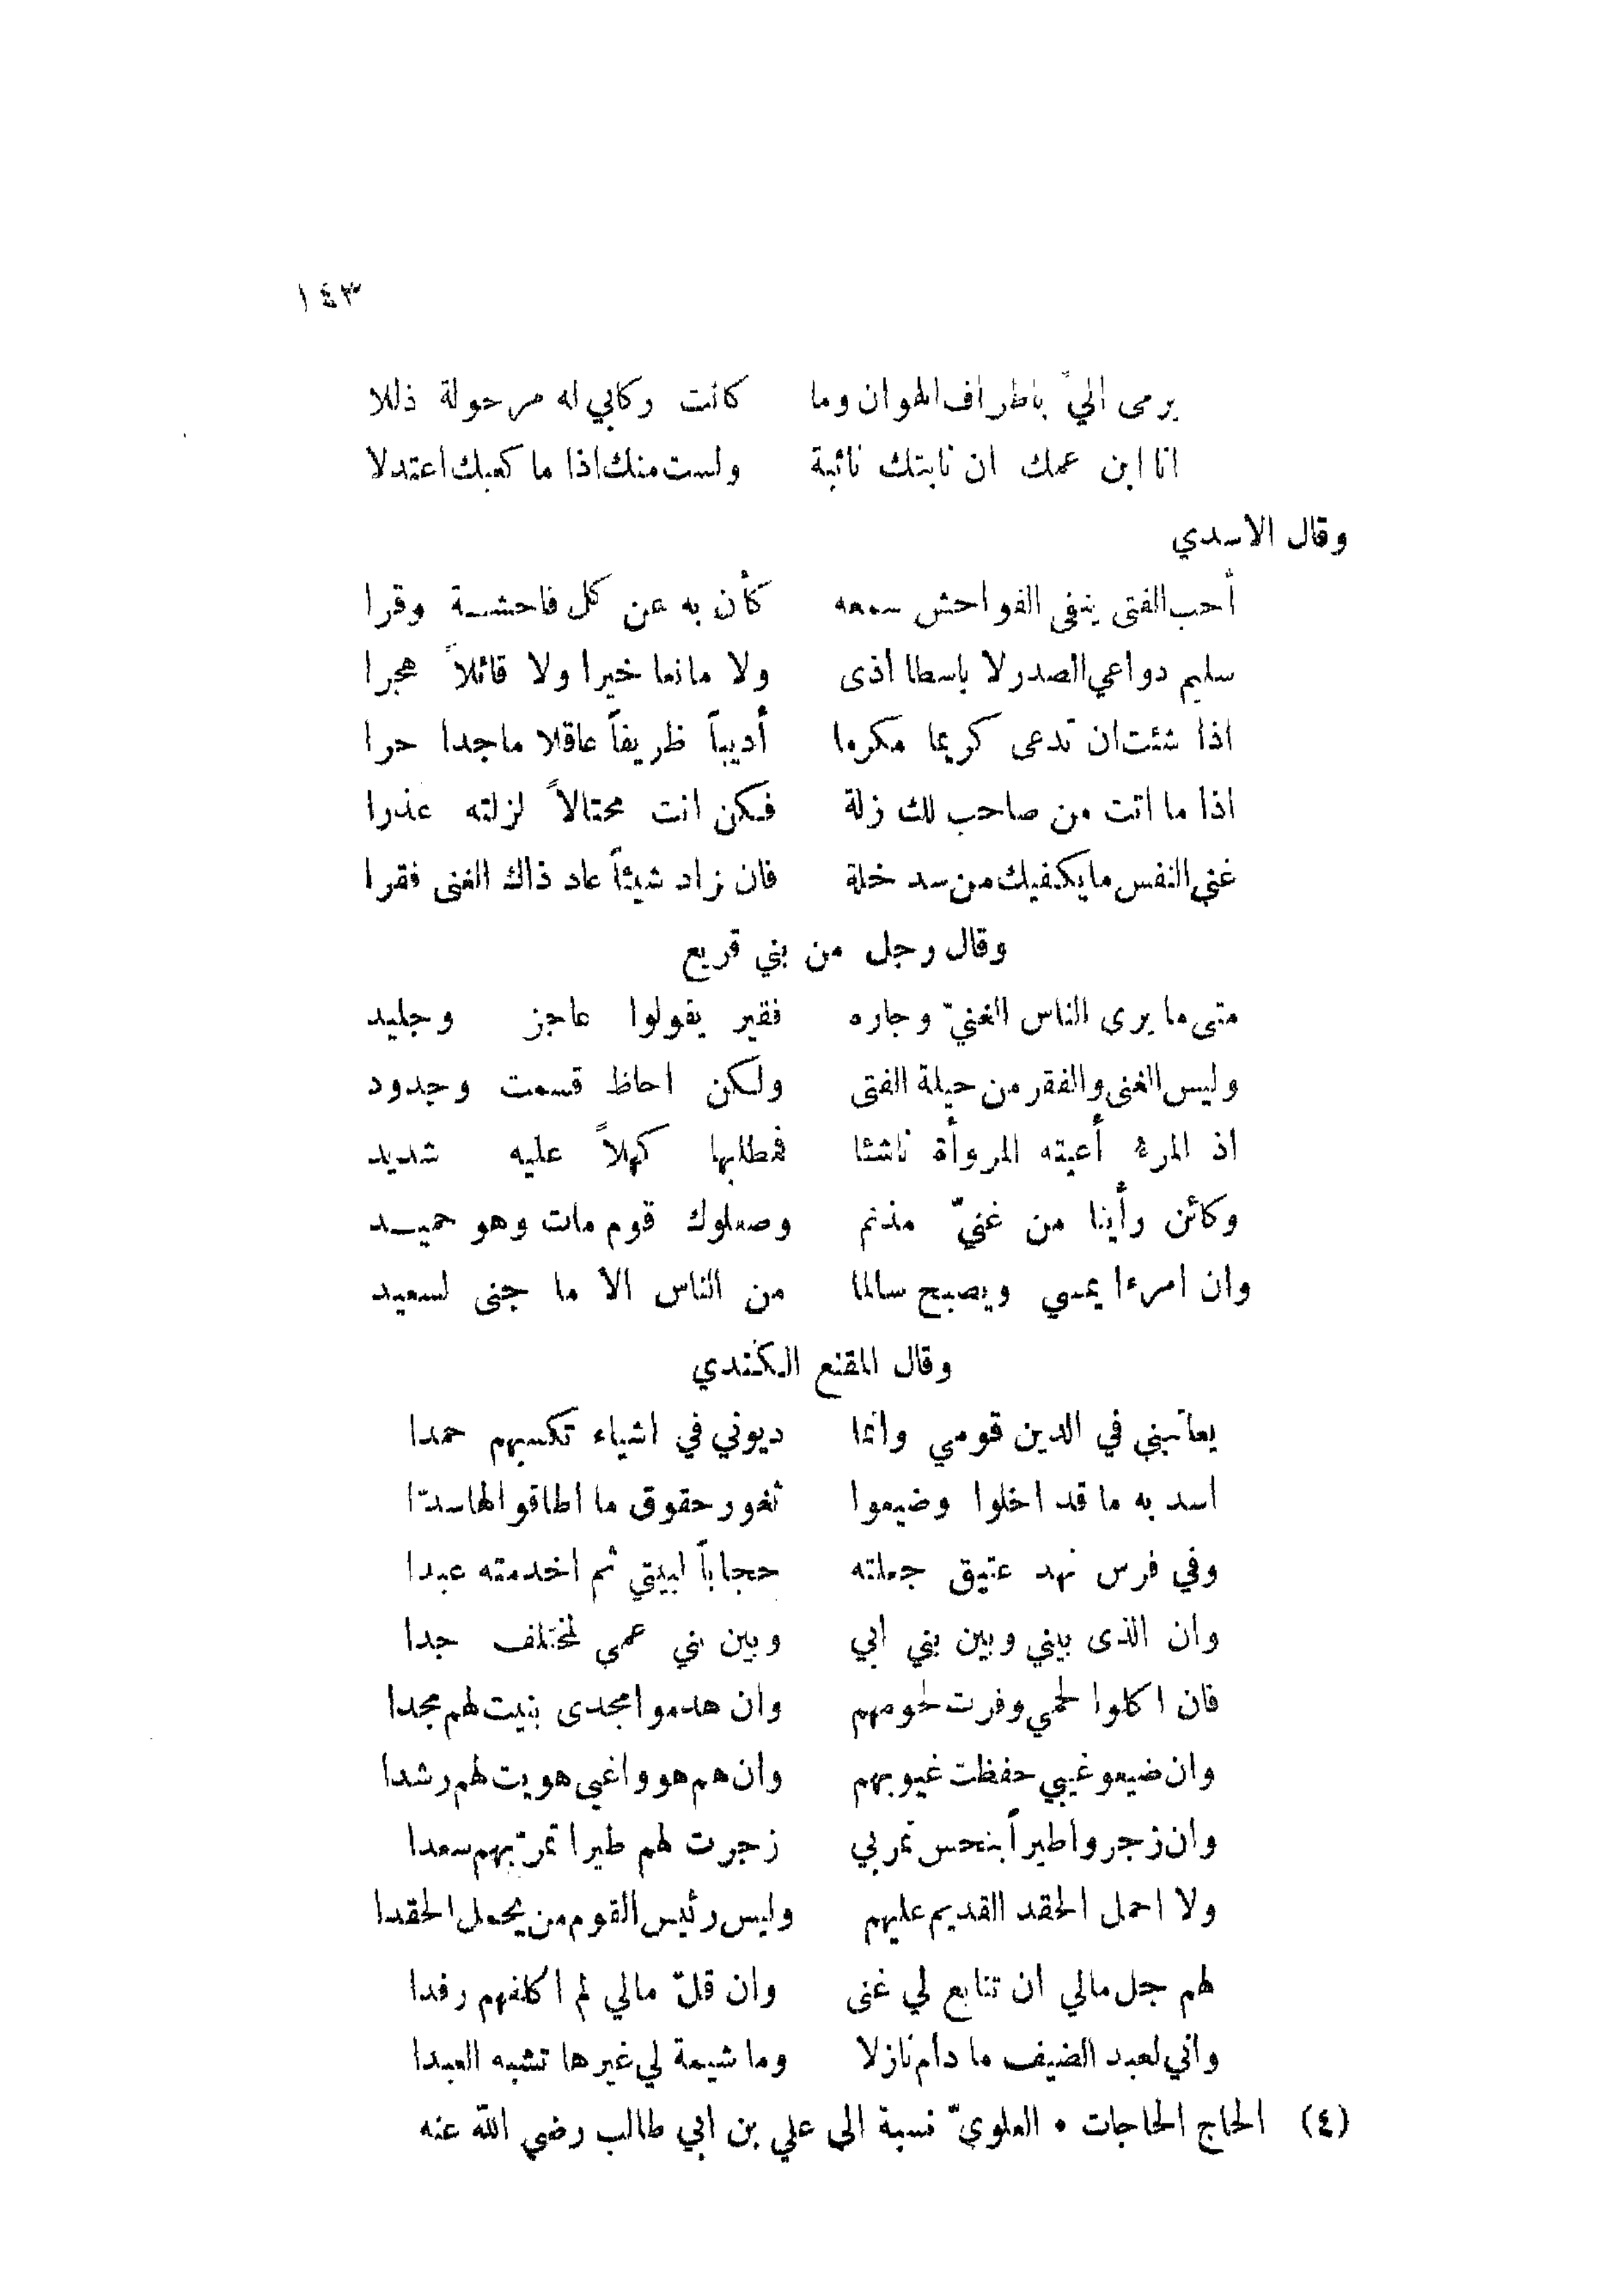 ١٤٣
يرمى اليّ باطراف الهوان وما كانت ركابي له مرحولة ذللا
انا ابن عمك ان نابتك نائبة ولست منك اذا ما كعبك اعتدلا
وقال الاسدي
أحب الفتى ينفى الفواحش سمعه كأن به عن كل فاحشة وقرا
سليم دواعي الصدر لا باسطا اذى ولا مانعا خيرا ولا قائلاً هجرا
اذا شئت ان تدعى كريما مكرما أديباً ظريفاً عاقلا ماجدا حرا
اذا ما اتت من صاحب لك زلة فكن انت محتالاً لزلته عذرا
غنى النفس ما يكفيك من سد خلة فان زاد شيئاً عاد ذاك الغنى فقرا
وقال رجل من بني قريع
متى ما يرى الناس الغنيّ وجاره فقير يقولوا عاجز وجليد
وليس الغنى والفقر من حيلة الفتى ولكن احاظ قسمت وجدود
اذ المرء أعيته المروأة ناشئا فمطلبها كهلاً عليه شديد
وكائن رأينا من غنيّ مذمم وصعلوك قوم مات وهو حميد
وان امرءا يمسي ويصبح سالما من الناس الا ما جنى لسعيد
وقال المقنع الكندي
يعاتبني في الدين قومي وانما ديوني في اشياء تكسبهم حمدا
اسد به ما قد اخلوا وضيعوا ثغور حقوق ما اطاقوا لها سدّا
وفي فرس نهد عتيق جعلته حجاباً لبيتي ثم اخدمته عبدا
وان الذى بيني وبين بني ابي وبين بني عمى لمختلف جدا
فان اكلوا لحمي وفرت لحومهم وان هدموا مجدى بنيت لهم مجدا
وان ضيعو غيبي حفظت غيوبهم وان هم هووا غيى هويت لهم رشدا
وان زجروا طيراً بنحس تمر بي زجرت لهم طيرا تمرّ بهم سعدا
ولا احمل الحقد القديم عليهم وليس رئيس القوم من يحمل الحقدا
لهم جل مالي ان تتابع لي غنى وان قلّ مالي لم اكلفهم رفدا
واني لعبد الضيف ما دام نازلا وما شيمة لي غيرها تشبه العبدا
(٤) الحاج الحاجات • العلويّ نسبة الى علي بن ابي طالب رضي الله عنه